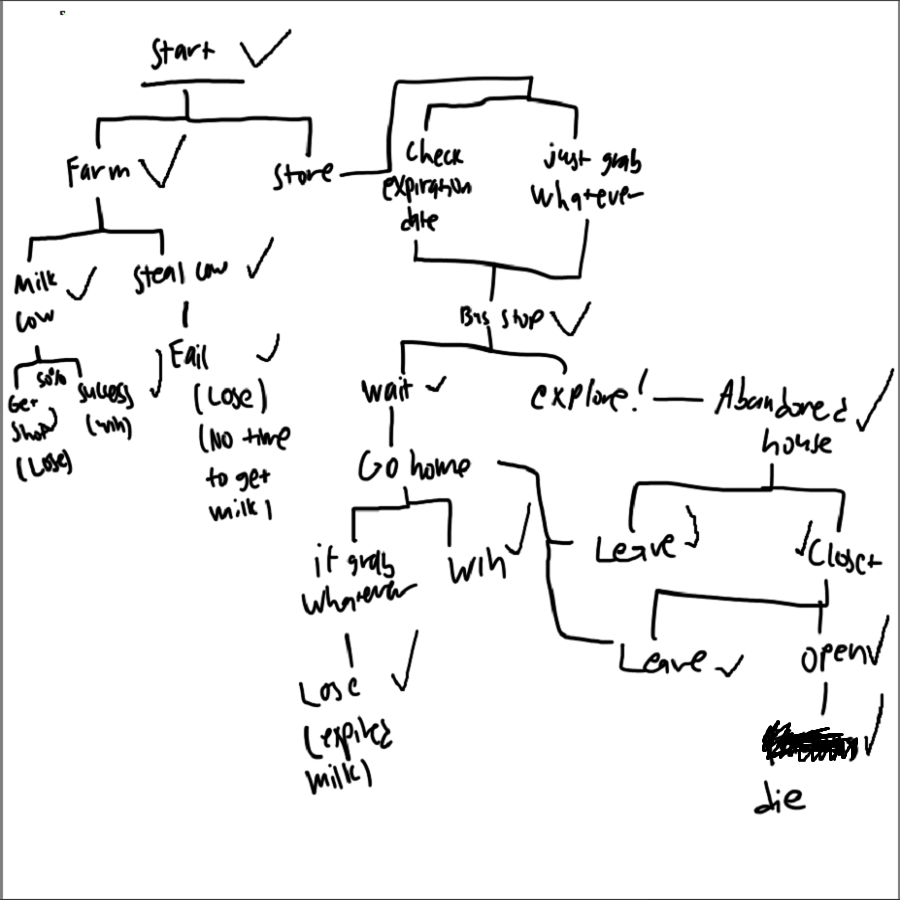 Start
Farm
Store
Check
expiration
date
just grab
whatever
Milk
Cow
Steal cow
50%
Get
Success
(win)
(Lose)
Fail
(Lose)
(No time
to get
milk)
Bus stop
wait
explore!
Abandoned
house
Go home
if grab
whatever
Win
Lose
(expired
milk)
Leave
Closet
Leave
open
die